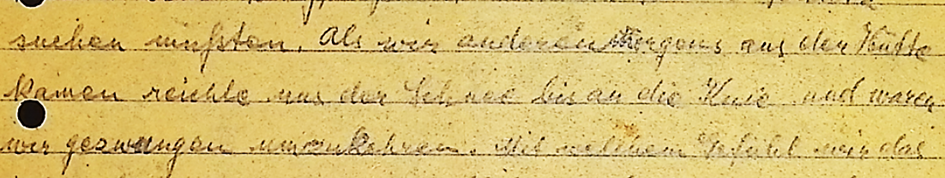 suchen mußten. Als wir anderen Morgens aus der Hütte
kamen reichte uns der Schnee bis an die Knie und waren
wir gezwungen umzukehren. Mit Gefühl wir das